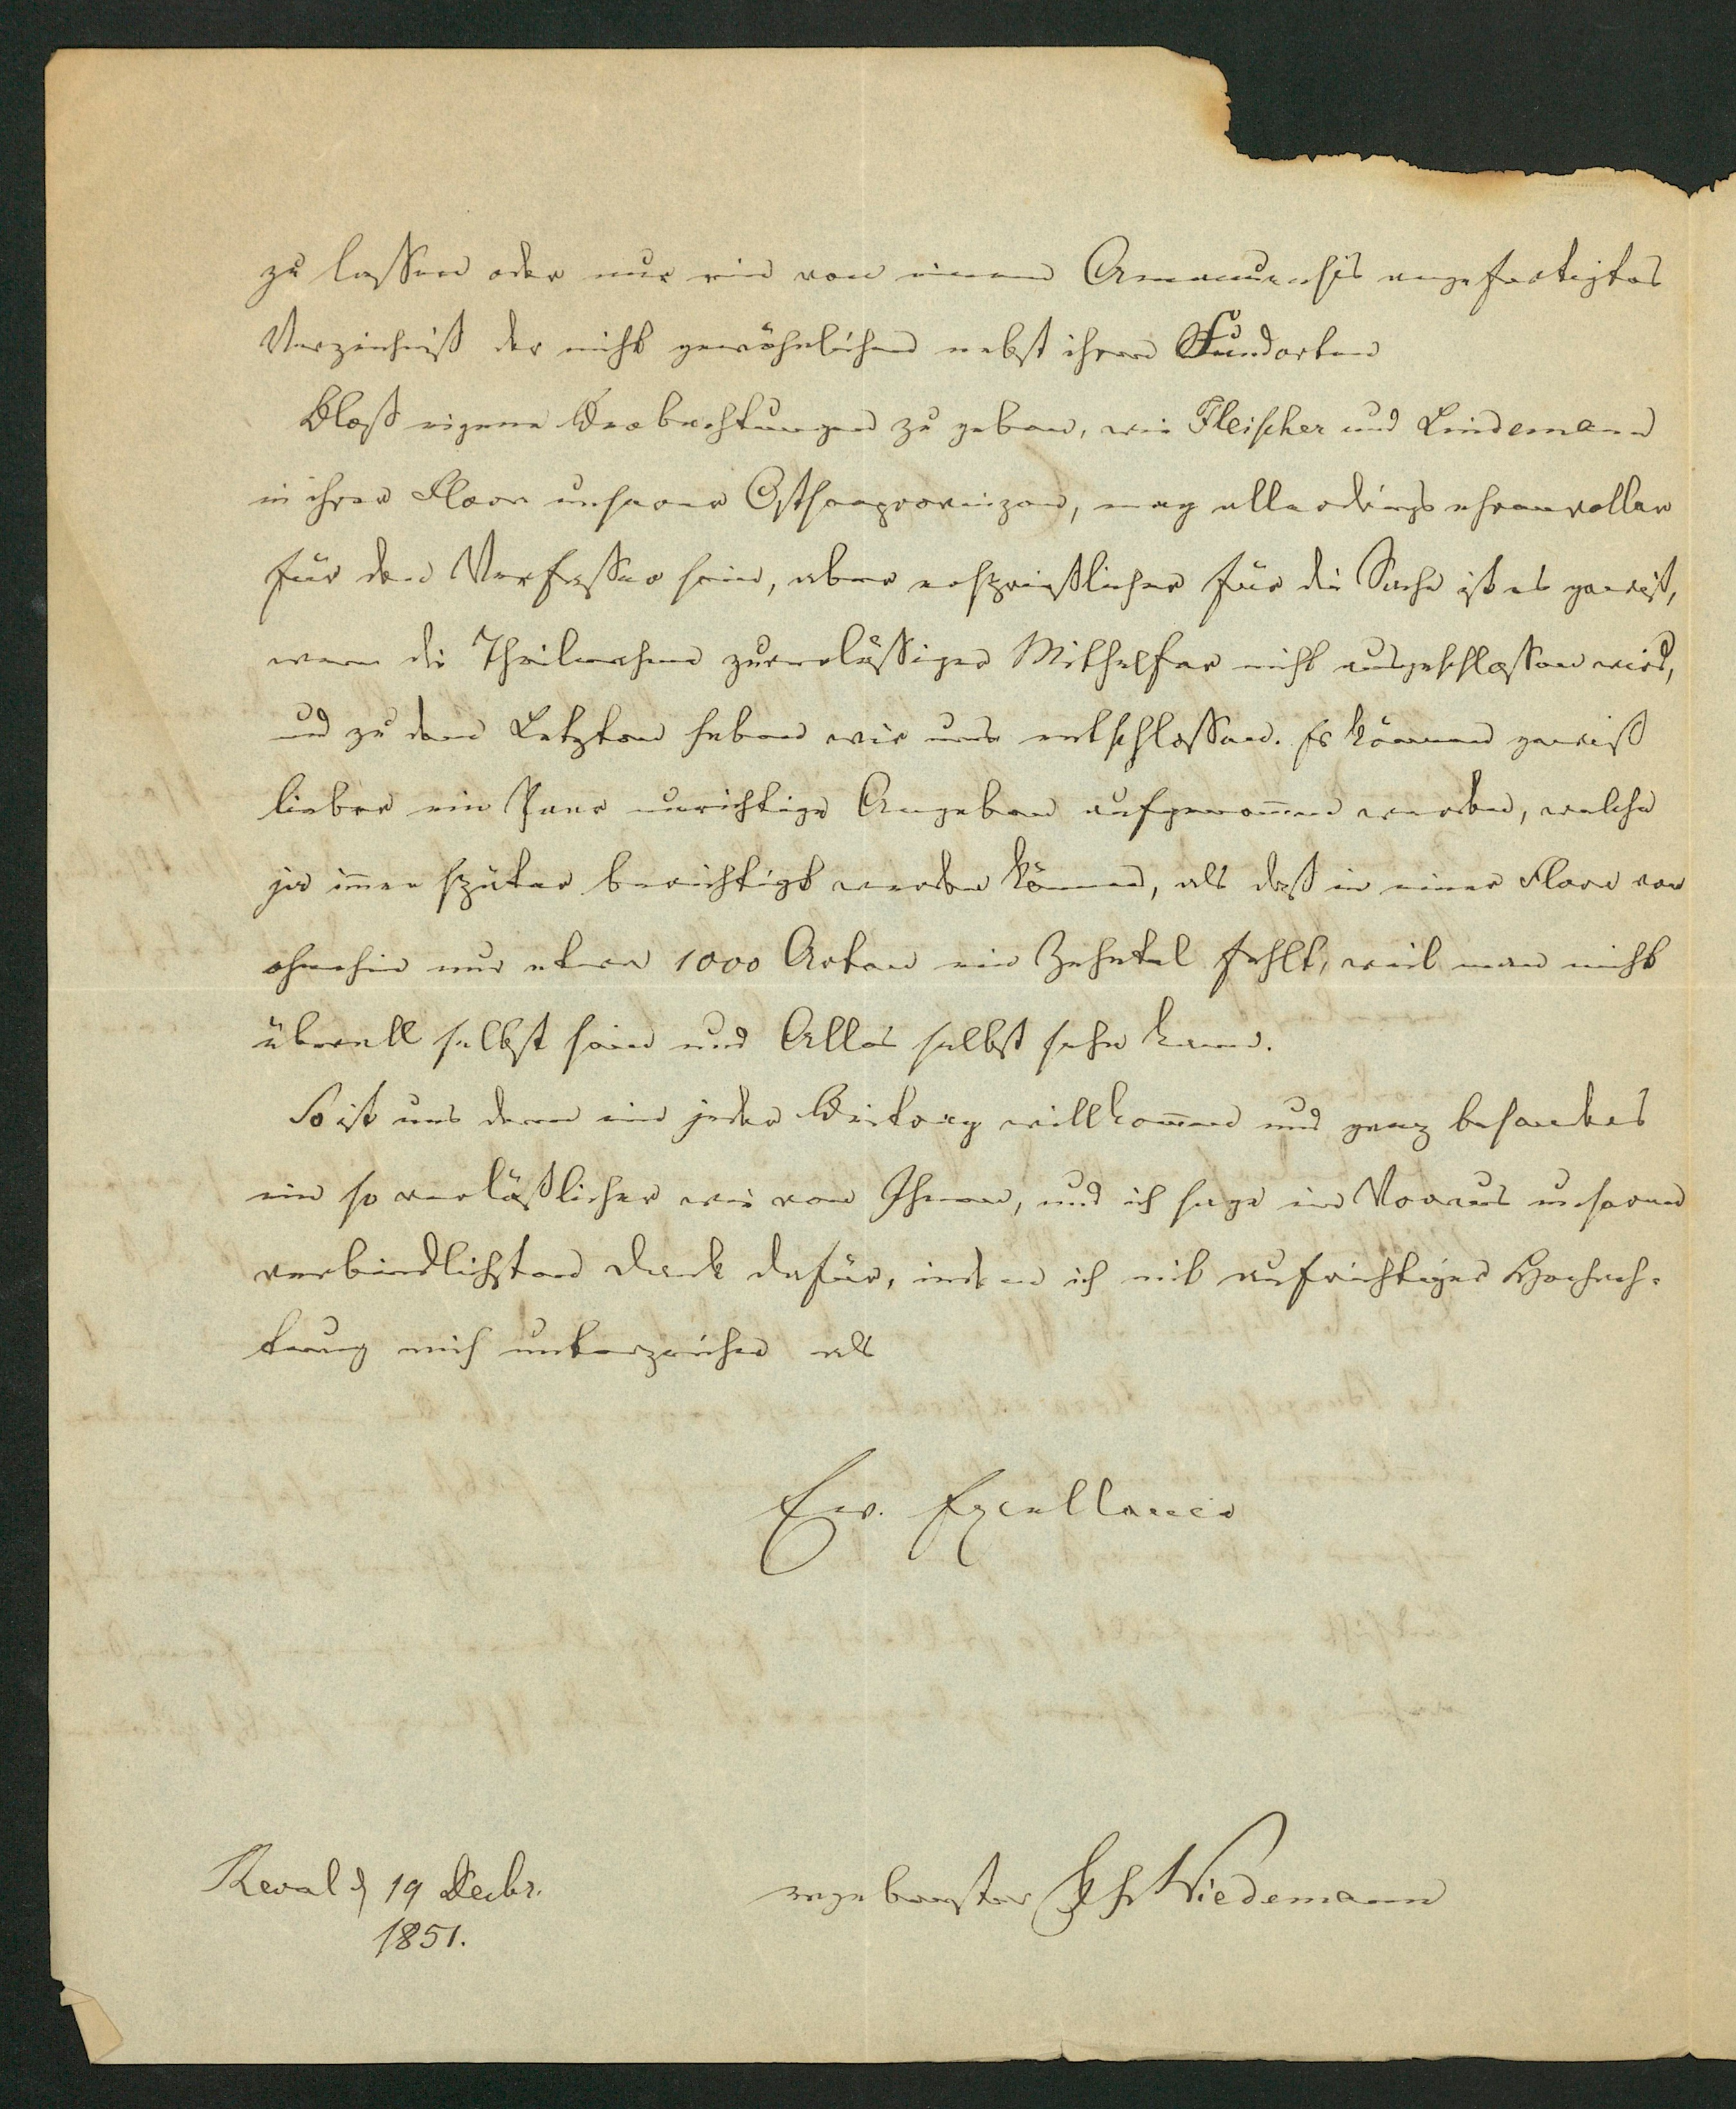 zu lassen oder nur ein von einem Amanuensis angefertigtes
Verzeichniß der nicht gewöhnlichen nebst ihren Fundorten
Bloß eigene Beobachtungen zu geben, wie Fleischer und Lindemann
in ihrer Flora unserer Ostseeprovinzen, mag allerdings ehrenvoller
für den Verfasser sein, aber ersprießlicher für die Sache ist es gewiß,
wenn die Theilnahme zuverlässiger Mithelfer nicht ausgeschlossen wird,
und zu dem Letzten haben wir uns entschlossen. Es können gewiß
lieber ein Paar unrichtige Angaben aufgenom̅en werden, welche
ja im̅er später berichtigt werden können, als daß in einer Flora von
ohnehin nur etwa 1000 Arten ein Zehntel fehlt, weil man nicht
überall selbst sein und Alles selbst sehn kann.
So ist uns denn ein jeder Beitrag willkom̅en und ganz besonders
ein so verläßlicher wie von Ihnen, und ich sage im Voraus unseren
verbindlichsten Dank dafür, indem ich mit aufrichtiger Hochach-
tung mich unterzeichne als
Ew. Excellence
Reval d 19 Decbr.
1851.
ergebenster Wiedemann